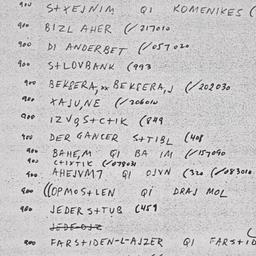 900 S+XEJNIM QI KOMENIKES (
900 BIZL AHER (/217010
900 DI ANDERBET (/057020
900 S+LOVBANK (993
900 BEKSERA, BEKSERA, (/202030
900 XAJU,NE (/206010
900 IZVQS+C+IK (849
900 DER GANCER S+TIBL (408
900 BAHEM QI BA IM (/157090
900 C+IXTIK (/078021
900 AHEJVM7 QI OJVN (320 (/083010
900 ((OPMOS+LEN QI DRAJ MOL
900 JEDER S+TUB (459
900 FARS+IDEN-L-AJZER QI FARS+ID